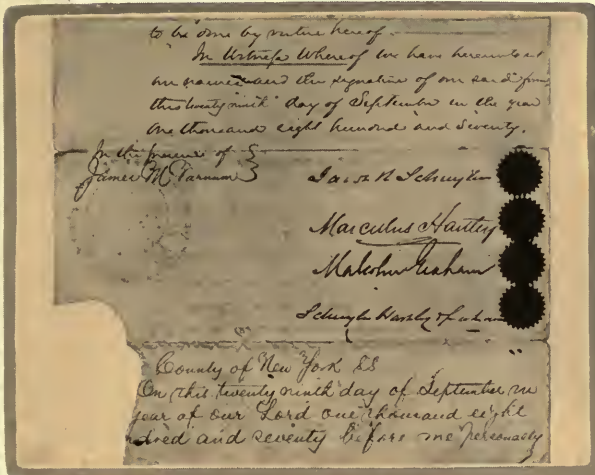 to be done by virtue hereof
In Witness Whereof we have hereunto set
our names and the signature of our said firm
this twenty ninth day of September in the year
one thousand eight hundred and seventy.
In the presence of
James M Varnum
Jacob R Schuyler
Marcellus Hartley
Malcolm Graham
Schuyler Hartley & Graham
County of New York SS
On this twenty ninth day of September in
year of our Lord one thousand eight
and seventy before me personally